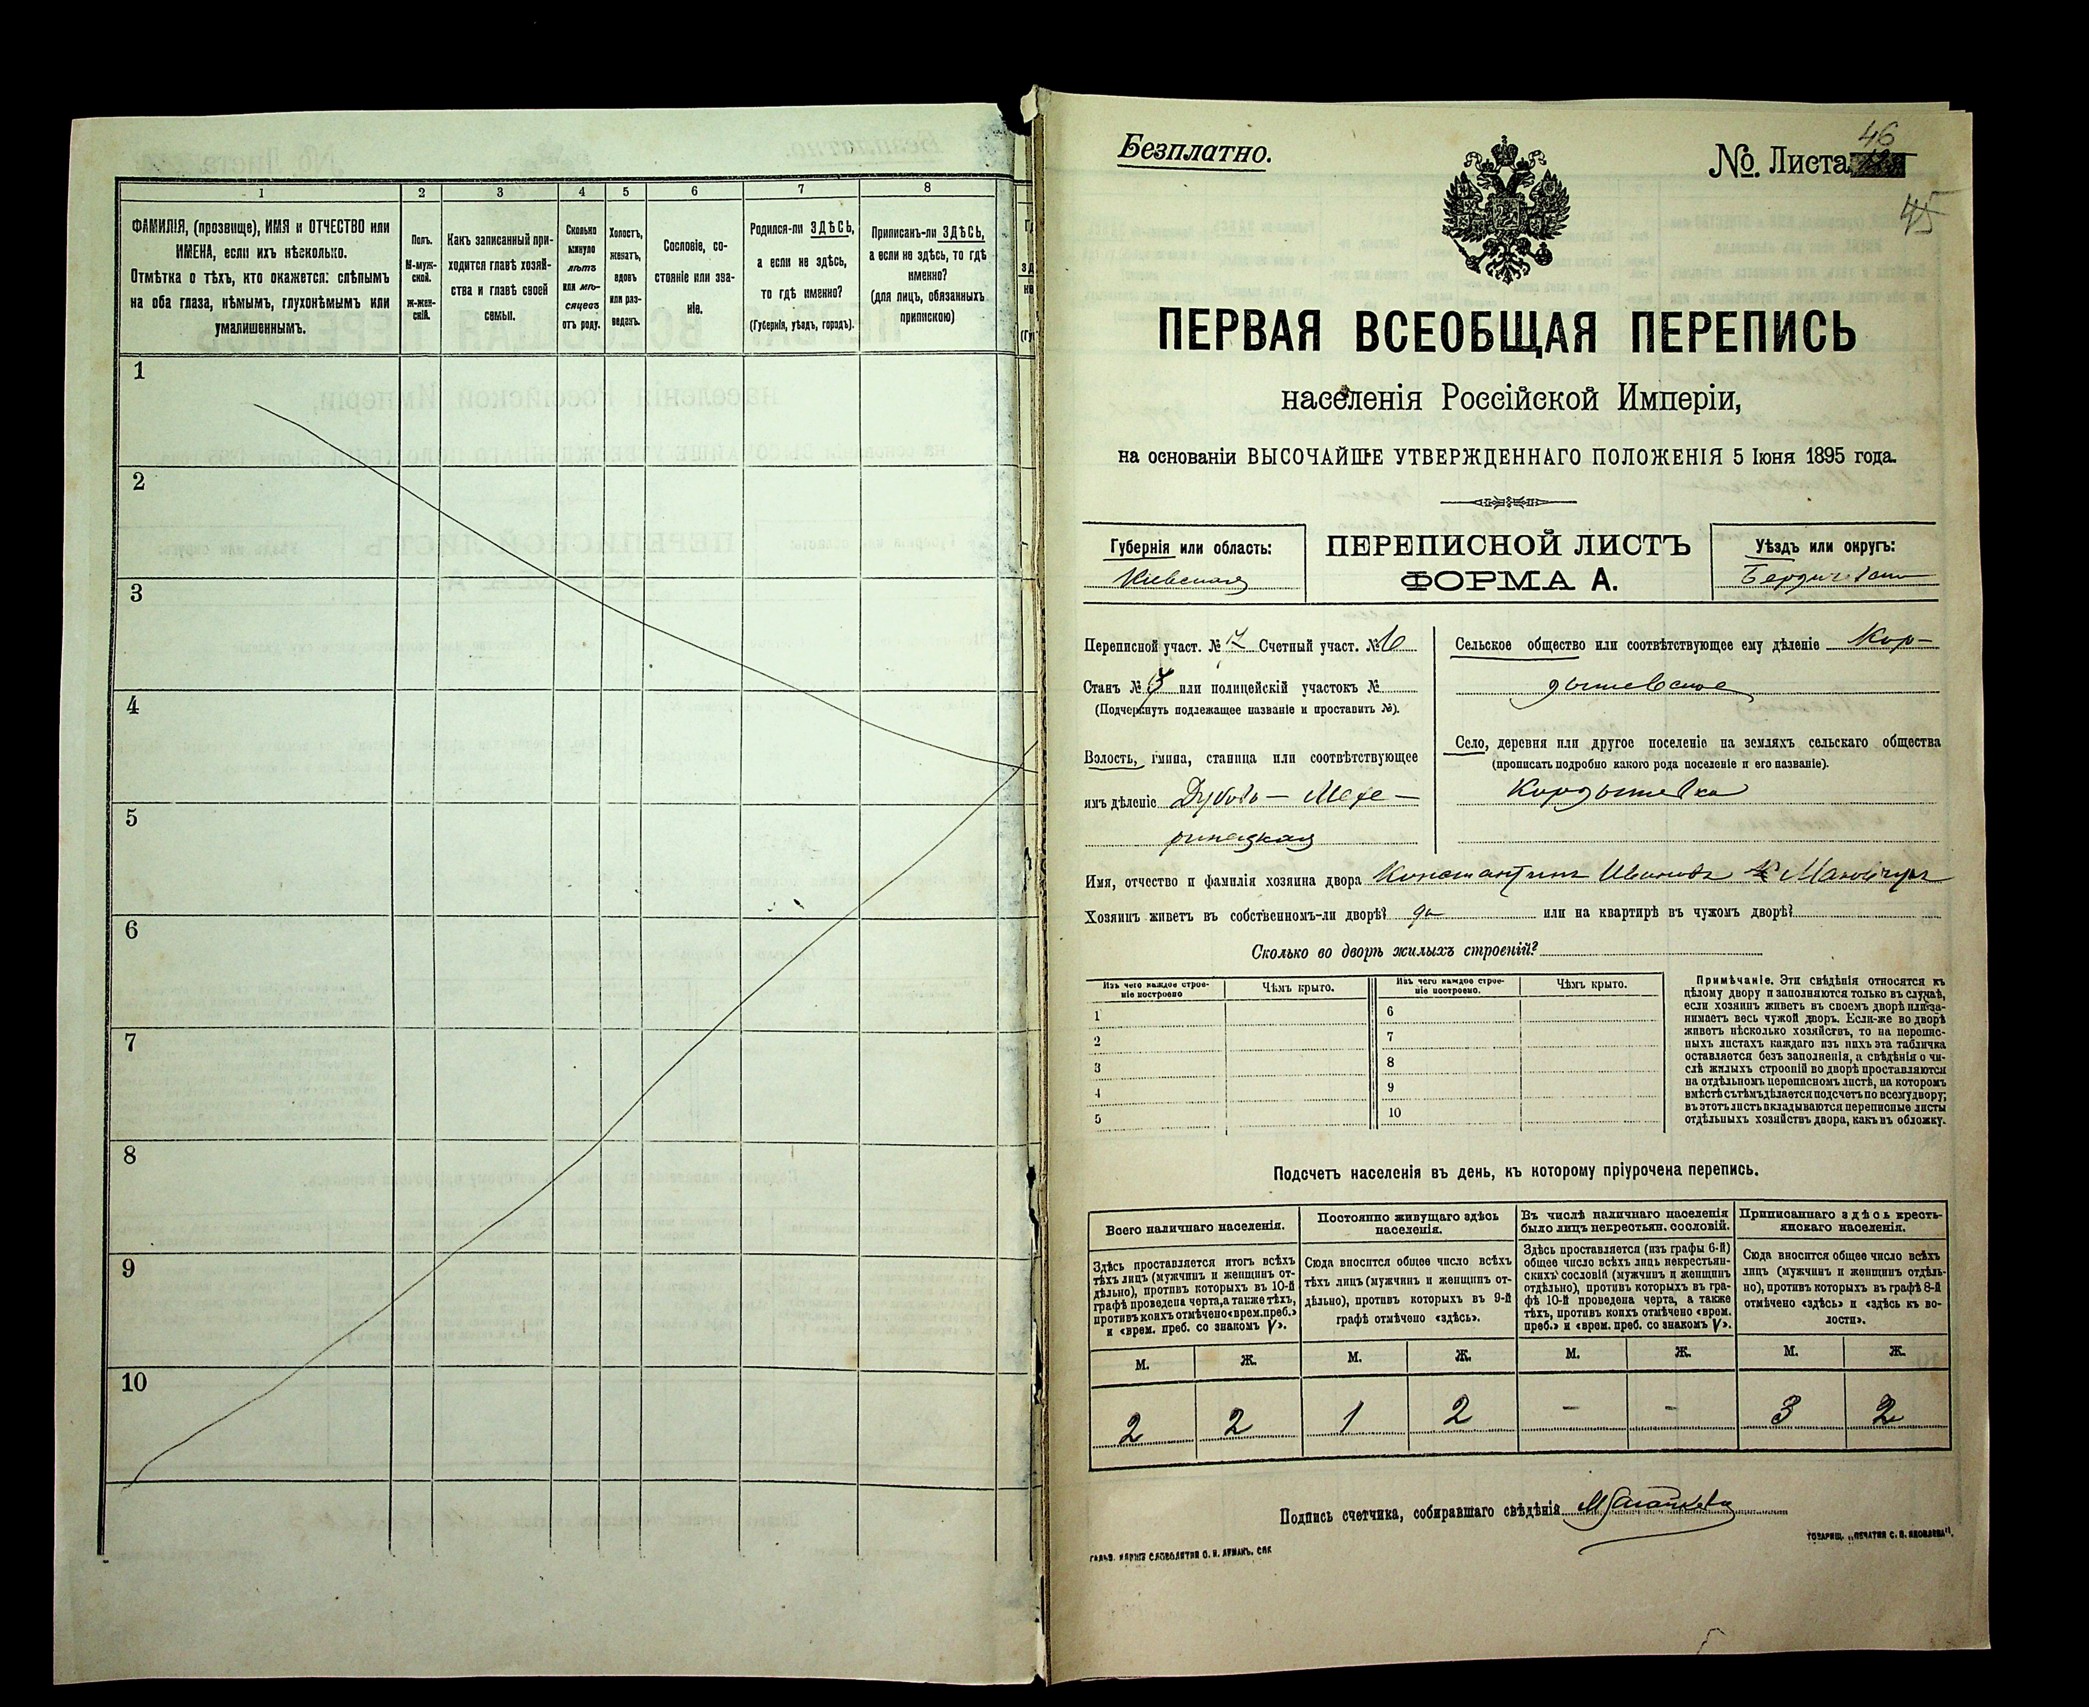 1
2
3
4
5
6
7
8
ФАМИЛІЯ, (прозвище), ИМЯ и ОТЧЕСТВО или
ИМЕНА, если ихъ нѣсколько.
Отмѣтка о тѣхъ, кто окажется: слѣпымъ
на оба глаза, нѣмымъ, глухонѣмымъ или
умалишеннымъ.
Полъ.
М-муж-
ской.
ж-жен-
скій.
Какъ записанный при-
ходится главѣ хозяй-
ства и главѣ своей
семьи.
Сколько
минуло
лѣтъ
или мѣ-
сяцевъ
отъ роду.
Холостъ,
женатъ,
вдовъ
или раз-
веденъ.
Сословіе, со-
стояніе или зва-
ніе.
Родился-ли ЗДѢСЬ,
а если не здѣсь,
то гдѣ именно?
(Губернія, уѣздъ, городъ).
Приписанъ-ли ЗДѢСЬ,
а если не здѣсь, то гдѣ
именно?
(для лицъ, обязанныхъ
припискою)
1
2
3
4
5
6
7
8
9
10
Безплатно.
№. Листа 46
45
ПЕРВАЯ ВСЕОБЩАЯ ПЕРЕПИСЬ
населенія Россійской Имперіи,
на основаніи ВЫСОЧАЙШЕ УТВЕРЖДЕННАГО ПОЛОЖЕНІЯ 5 Іюня 1895 года.
Губернія или область:
Кіевская
ПЕРЕПИСНОЙ ЛИСТЪ
ФОРМА А.
Уѣздъ или округъ:
Бердичевскій
Переписной участ. № 7 Счетный участ. № 10
Станъ № 3 или полицейскій участокъ №
(Подчеркнуть подлежащее названіе и проставить №).
Волость, гмина, станица или соотвѣтствующее
имъ дѣленіе Дубово-Мехе-
ринецкая
Сельское общество или соотвѣтствующее ему дѣленіе Кор-
дышевское
Село, деревня или другое поселеніе на земляхъ сельскаго общества
(прописать подробно какого рода поселеніе и его названіе).
Кордышевка
Имя, отчество и фамилія хозяина двора Константинъ Ивановъ
Хозяинъ живетъ въ собственномъ-ли дворѣ? да или на квартирѣ въ чужомъ дворѣ?
Сколько во дворѣ жилыхъ строеній?
Изъ чего каждое строе-
ніе построено
Чѣмъ крыто.
Изъ чего каждое строе-
ніе построено.
Чѣмъ крыто.
1
2
3
4
5
6
7
8
9
10
Примѣчаніе. Эти свѣдѣнія относятся къ
цѣлому двору и заполняются только въ случаѣ,
если хозяинъ живетъ въ своемъ дворѣ или за-
нимаетъ весь чужой дворъ. Если-же во дворѣ
живетъ нѣсколько хозяйствъ, то на перепис-
ныхъ листахъ каждаго изъ нихъ эта табличка
оставляется безъ заполненія, а свѣдѣнія о чи-
слѣ жилыхъ строеній во дворѣ проставляются
на отдѣльномъ переписномъ листѣ, на которомъ
вмѣстѣ съ тѣмъ дѣлается подсчетъ по всему двору;
въ этотъ листъ вкладываются переписные листы
отдѣльныхъ хозяйствъ двора, какъ въ обложку.
Подсчетъ населенія въ день, къ которому пріурочена перепись.
Всего наличнаго населенія.
Здѣсь проставляется итогъ всѣхъ
тѣхъ лицъ (мужчинъ и женщинъ от-
дѣльно), противъ которыхъ въ 10-й
графѣ проведена черта, а также тѣхъ,
противъ коихъ отмѣчено «врем. преб.»
и «врем. преб. со знакомъ V».
Постоянно живущаго здѣсь
населенія.
Сюда вносится общее число всѣхъ
тѣхъ лицъ (мужчинъ и женщинъ от-
дѣльно), противъ которыхъ въ 9-й
графѣ отмѣчено «здѣсь».
Въ числѣ наличнаго населенія
было лицъ некрестьян. сословій.
Здѣсь проставляется (изъ графы 6-й)
общее число всѣхъ лицъ некрестьян-
скихъ сословій (мужчинъ и женщинъ
отдѣльно), противъ которыхъ въ гра-
фѣ 10-й проведена черта, а также
тѣхъ, противъ коихъ отмѣчено «врем.
преб.» и «врем. преб. со знакомъ V».
Приписаннаго здѣсь кресть-
янскаго населенія.
Сюда вносится общее число всѣхъ
лицъ (мужчинъ и женщинъ отдѣль-
но), противъ которыхъ въ графѣ 8-й
отмѣчено «здѣсь» и «здѣсь къ во-
лости».
М. Ж. М. Ж. М. Ж. М. Ж.
2 2 1 2 - - 3 2
Подпись счетчика, собиравшаго свѣдѣнія
ТОВАРИЩ. „ПЕЧАТНЯ С. П. ЯКОВЛЕВА".